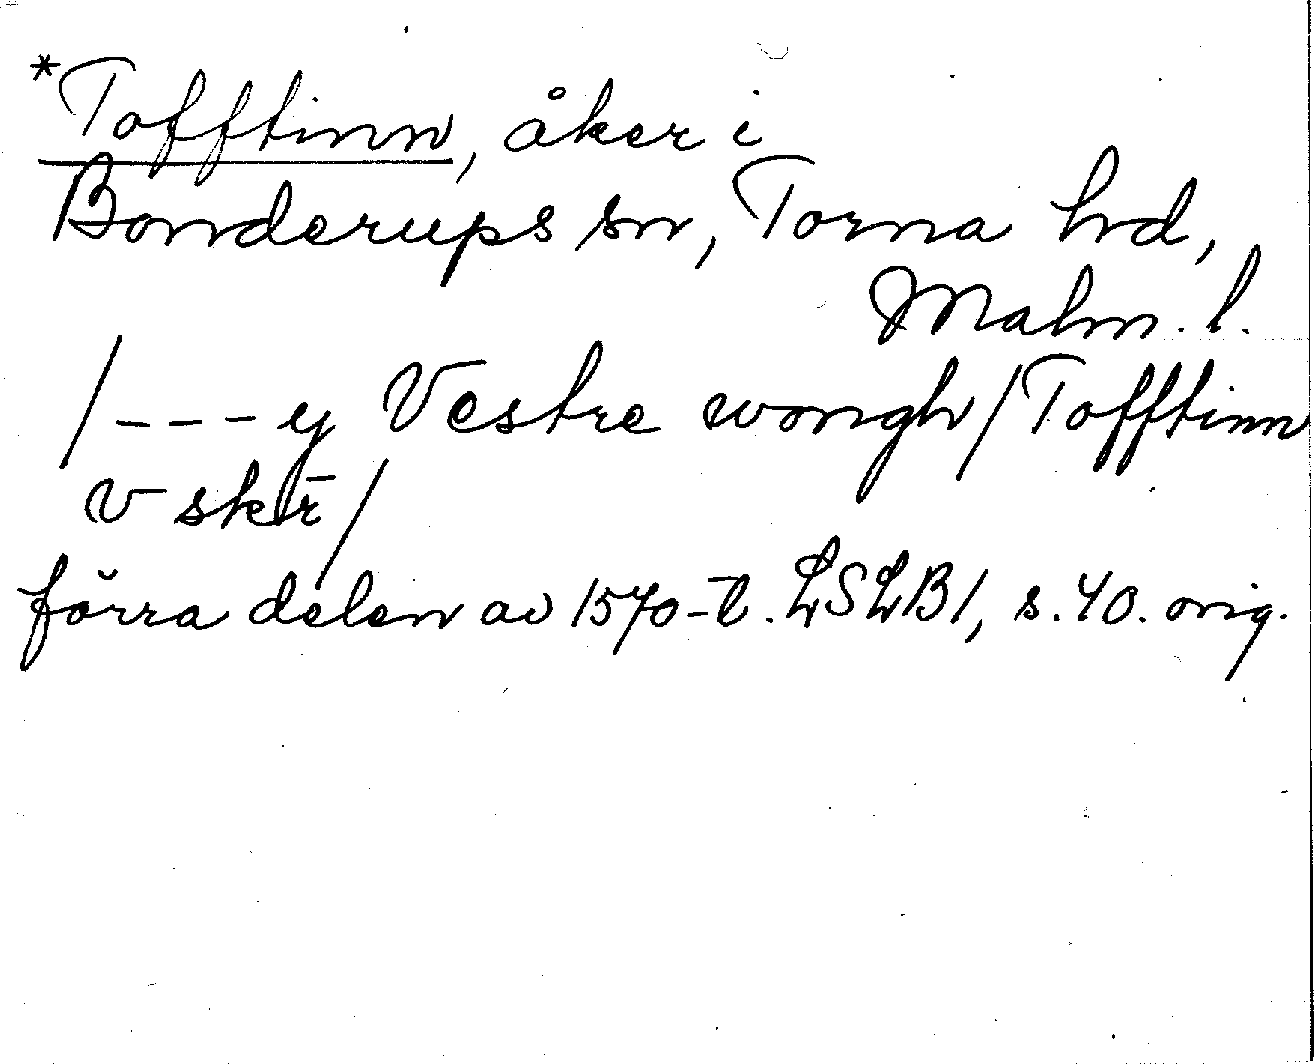 *Tofftinn, åker i
Bonderups sn, Torna hd,
Malm. l.
/---y Vestre wongh/Tofftinn
v skr̄/
förra delen av 1570-t. LSLB1, s. 40. orig.